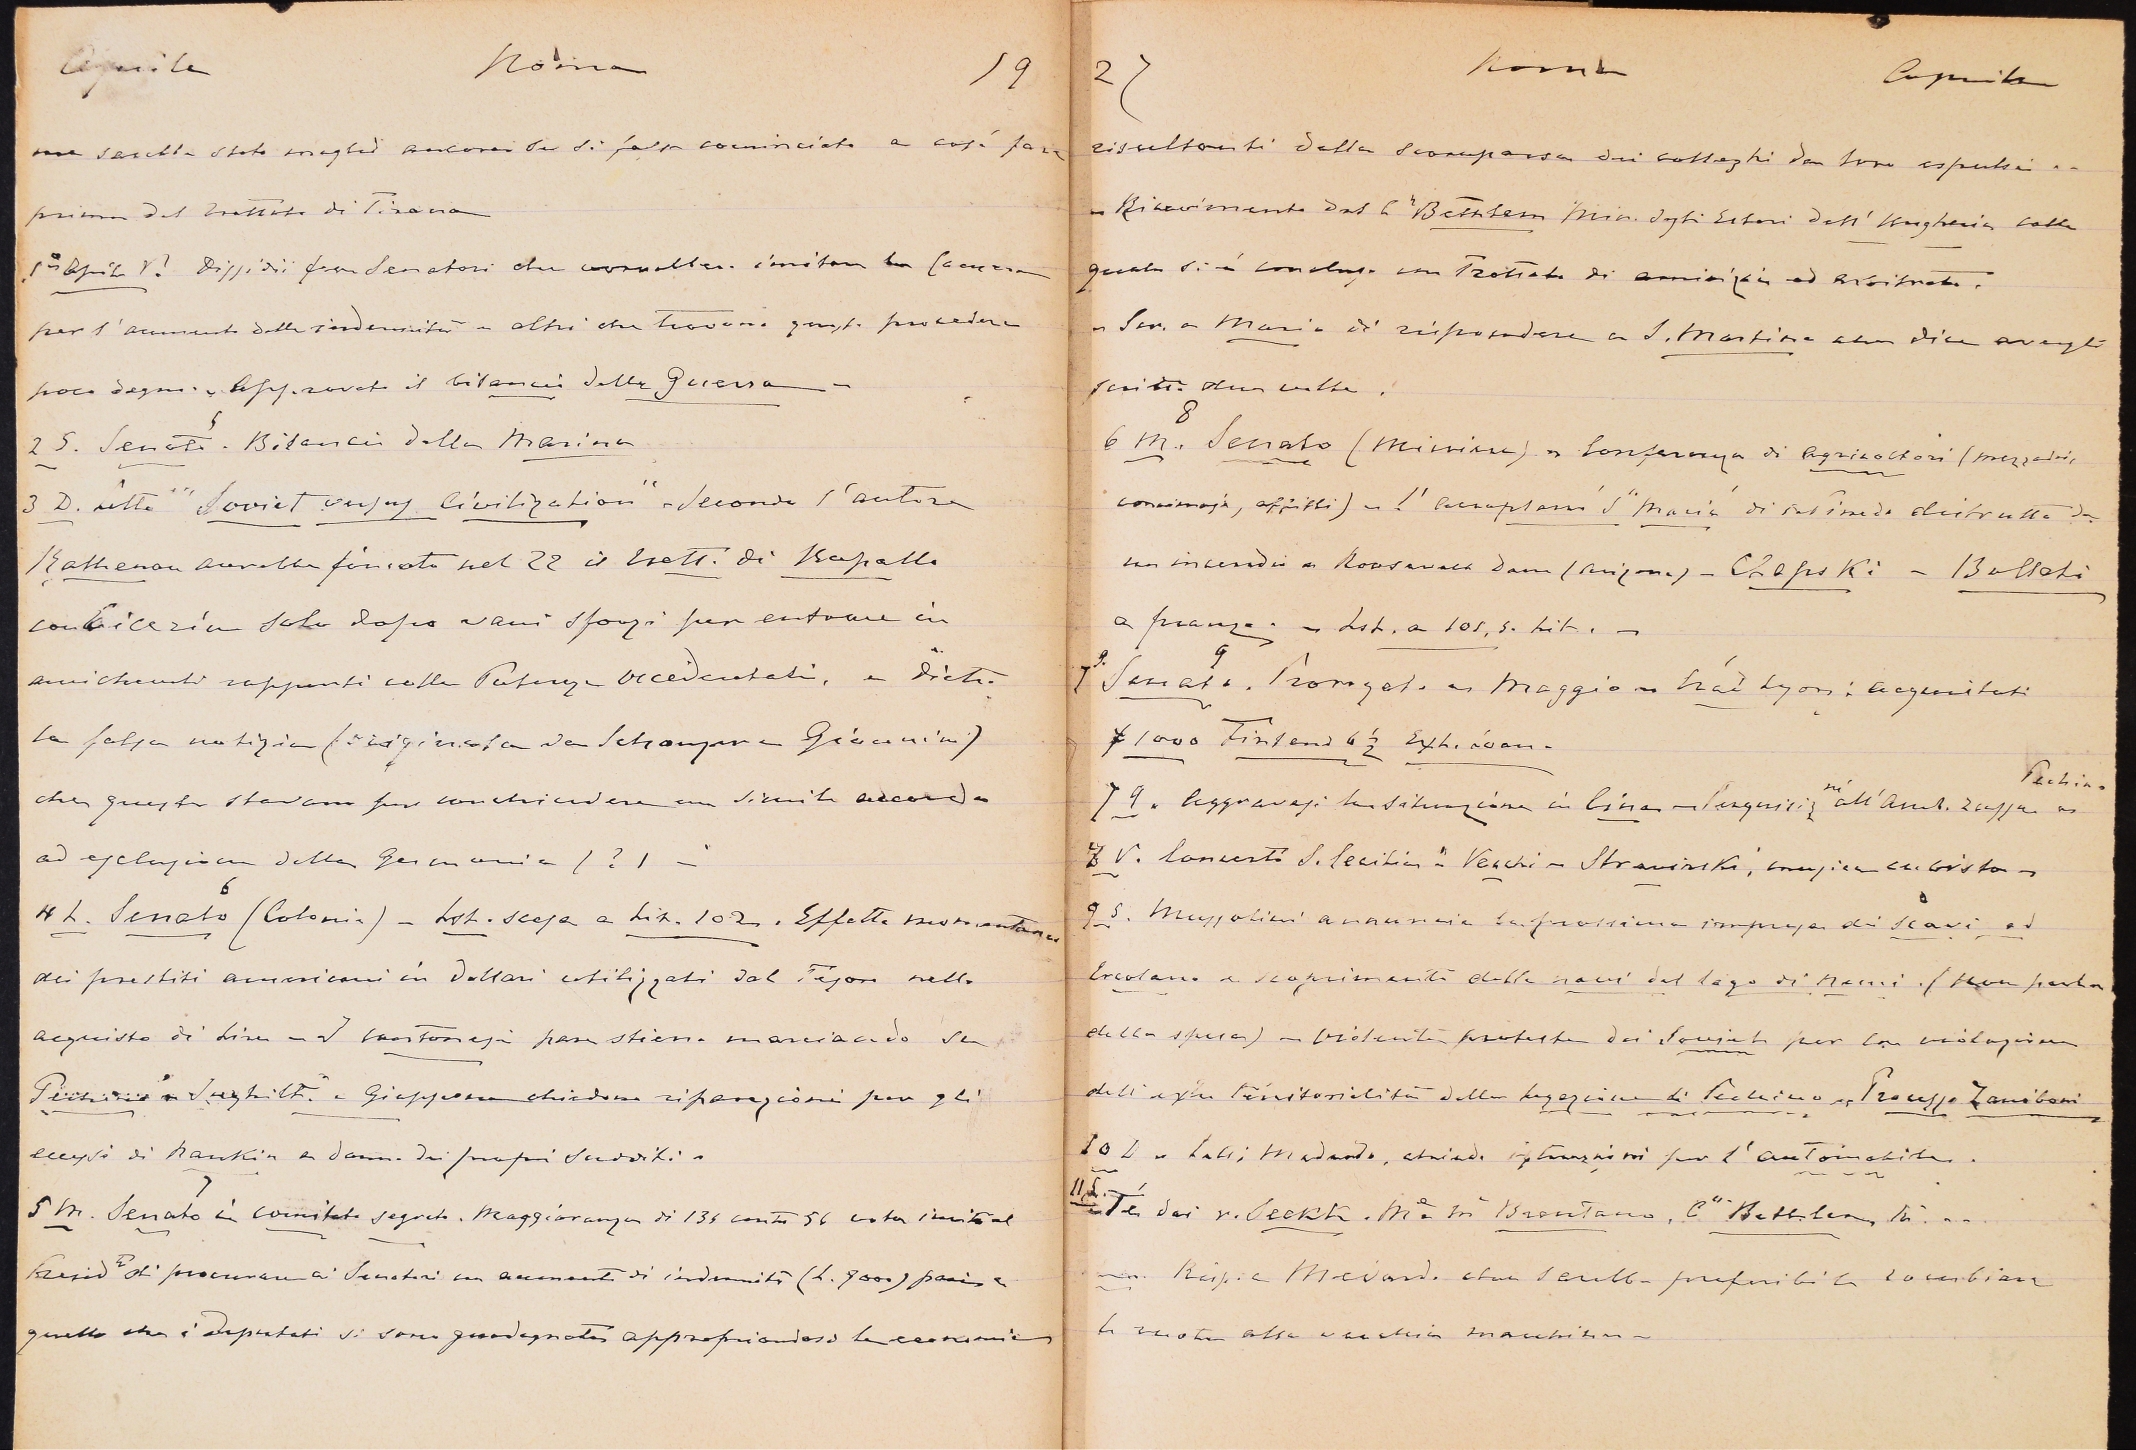 Aprile Roma 19
me sarebbe stato meglio ancora se si fosse cominciato a così fare
prima del trattato di Tirana
1° Aprile V. Dissidii fra Senatori che vorrebbero imitare la Camera
per l'aumento delle indennità e altri che trovano questo procedere
poco degno. Approvato il bilancio della Guerra –
2 S. Senato 5. Bilancio della Marina
3 D. letto "Soviet versus Civilization" – Secondo l'autore
Rathenau avrebbe firmato nel 22 il tratt. di Rapallo
con Cicerin solo dopo vani sforzi per entrare in
amichevoli rapporti colle Potenze occidentali, e dietro
la falsa notizia (originata da Schanzer e Giannini)
che queste stavano per conchiudere un simile accordo
ad esclusione della Germania (?) –
4 L. Senato 6 (Colonie) – Lst. scesa a Lit. 102. Effetto momentaneo
dei prestiti americani in dollari utilizzati dal Tesoro nello
acquisto di Lire – I cantonesi pare stiano marciando su
Pechino – Inghilt. e Giappone chiedono riparazioni per gli
eccessi di Nankin a danno dei propri sudditi –
5 M. Senato 7 in comitato segreto. Maggioranza di 136 contro 56 vota invito al
Presid.te di procurare ai Senatori un aumento di indennità (L. 9000) pari a
quello che i deputati si sono guadagnato appropriandosi le economie
27 Roma Aprile
risultanti dalla scomparsa dei colleghi da loro espulsi –
– Ricevimento del C. Bethlem Min. degli Esteri dell'Ungheria colla
quale si è concluso un Trattato di amicizia ed arbitrato.
– Scr. a Maria di rispondere a S. Martino che dice avergli
scritto due volte.
6 M. Senato 8 (Miniere) – Conferenza di agricoltori (mezzadri,
affitti) – L'aeroplano "S. Maria" di dePinedo distrutto da
un incendio a Roosevelt Dam (Arizona) – – Bollati
a pranzo. – Lst. a 101,5. Lit. –
7 G. Senato 9. Prorogato a Maggio – Lyon: acquistati
1000 Finland 6 1/2
7 9. Aggravasi la situazione in Cina – Perquisiz.ni all'Amb. russa a Pechino
8 V. Concerto S. Cecilia – Vecchi – Stravinski, musica cubista –
9 S. Mussolini annuncia la prossima impresa di scavi ad
Ercolano e scoprimento delle navi del lago di Nemi. (Non parla
della spesa) – Violenta protesta dei Soviet per la violazione
dell'extra territorialità della Legazione di Pechino – Processo Zaniboni
10 D. – Medardo, chiede istruzioni per l'automobile.
11 L. – Tè dai v. Seckth. Brentano, C. Bethlem,
– Risp. a Medardo che sarebbe preferibile cambiare
le ruote alla vecchia macchina –